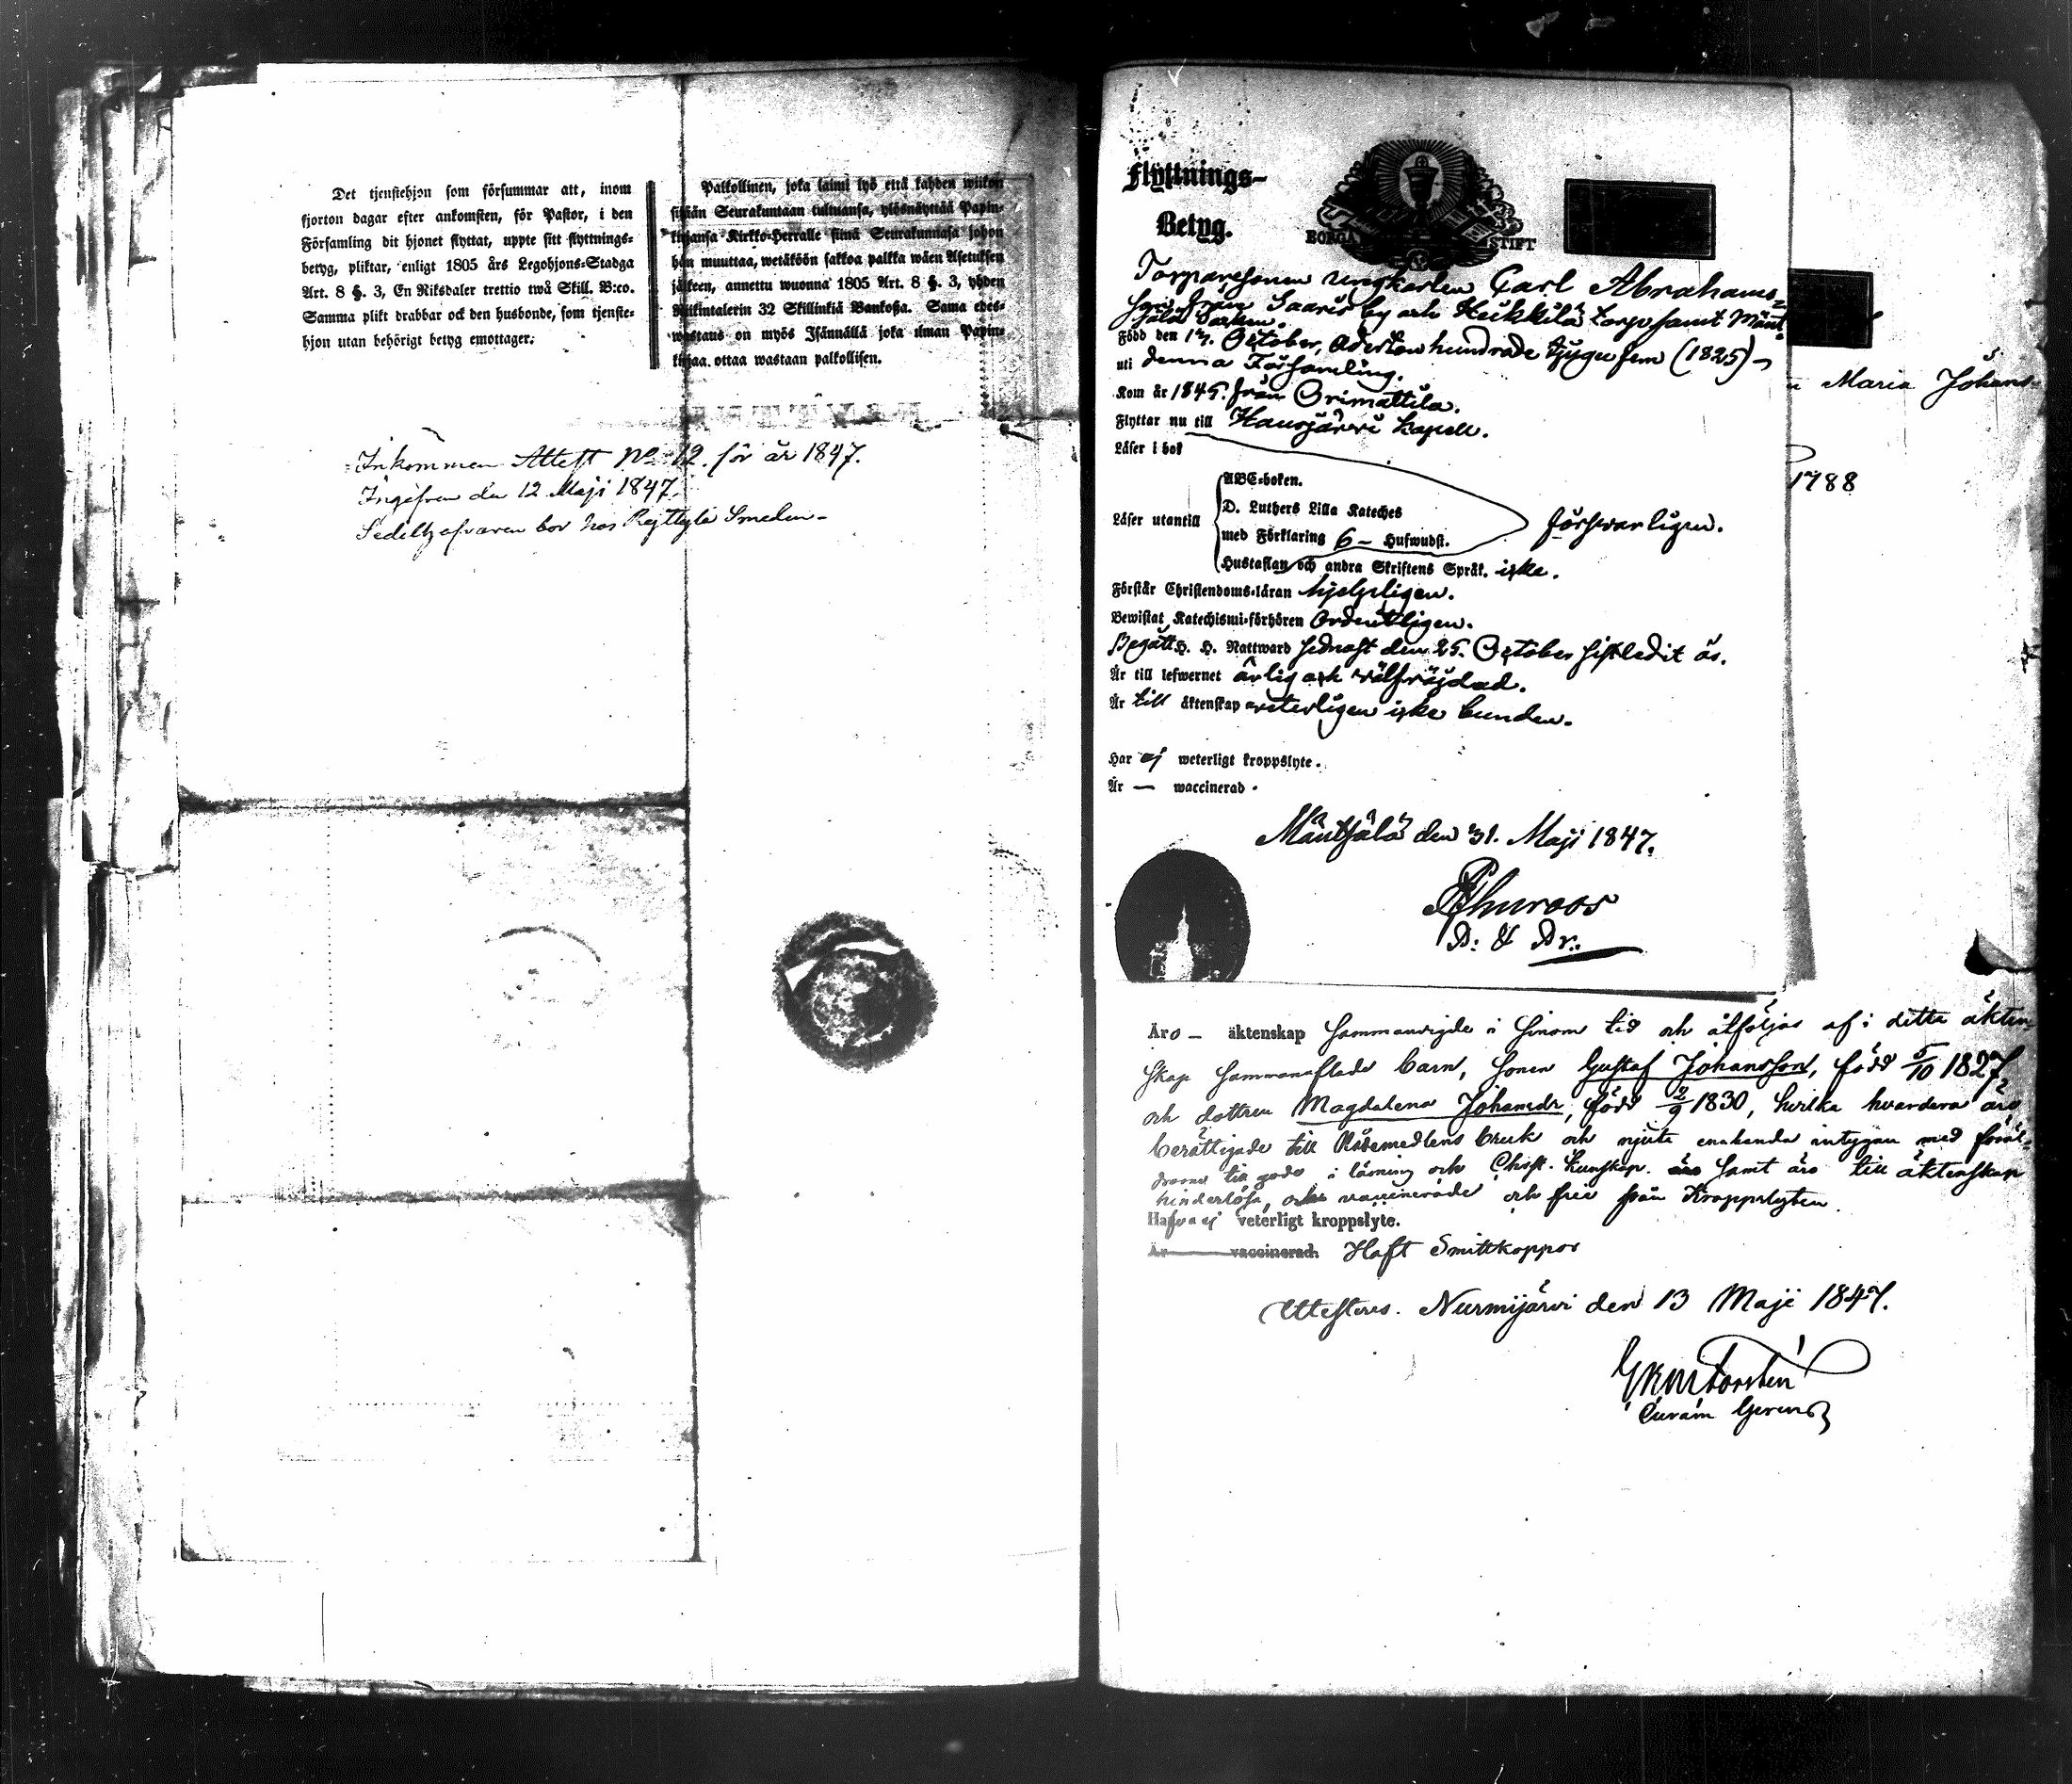 Det tjenstehjon som försummar att, inom
fjorton dagar efter ankomsten, för Pastor, i den
Församling dit hjonet flyttat, uppte sitt flyttnings-
betyg, pliktar, enligt 1805 års Legohjons-Stadga
Art. 8 §. 3, En Riksdaler trettio twå Skill. B:co.
Samma plikt drabbar ock den husbonde, som tjenste-
hjon utan behörigt betyg emottager.
Palkollinen, joka laimi lyö että kahden wiikon
sisään Seurakuntaan tulmansa, ylösnäyttää Papin-
kirjansa Kirkko-Herralle siinä Seurakunnasa johon
hän muuttaa, wetäköön sakkoa palkka wäen Asetuksen
jälkeen, annettu wuonna 1805 Art. 8 §. 3, yhden
Riikintalerin 32 Skillinkiä Bankossa. Sama edes-
wastaus on myös Isännällä joka ilman Papin-
kirjaa ottaa wastaan palkollisen.
Inkommen Attest No 12. för år 1847.
den 12 Maji 1847.
bor hos Smeden
Flyttnings-
Betyg.
BORGÅ STIFT
Torparesonen ungkarlen Carl Abrahams-
son från Saaris by och Heikkilä torp samt Mänt-
sälä Socken.
Född den 17. October, Adertonhundrade tjugufem (1825)
uti denna Församling.
Kom år 1845. från Orimattila.
Flyttar nu till Hausjärvi Kapell.
Läser i bok
ABC-boken.
Läser utantill D. Luthers Lilla Kateches
med Förklaring 6 – Hufwudst. försvarligen.
Hustaflan och andra Skriftens Språk. icke.
Förstår Christendoms-läran hjelpligen.
Bewistat Katechismi-förhören Ordentligen.
Begått H. H. Nattward sednast den 25. October sistledit år.
Är till lefwernet ärlig och välfräjdad.
Är till äktenskap veterligen icke bunden.
Har ej weterligt kroppslyte.
Är — waccinerad.
Mäntsälä den 31. Maji 1847.
Maria Johans-
1788
Äro – äktenskap Sammanvigde i sinom tid och åtföljas af i detta äkten
skap sammanaflade barn, sonen Gustaf Johansson, född 5/10 1827,
och dottren Magdalena Johansdr, född 2/9 1830, hvilka hvardera äro
berättigade till Nådemedlens bruk och njuta enahanda intygan med föräl-
drarna till godo i läsning och Christ. kunskap. samt äro till äktenskap
hinderlösa, och vaccinerade och frie från Kroppslyten.
Hafva ej veterligt kroppslyte.
Är vaccinerad. Haft Smittkoppor
Attesteras. Nurmijärvi den 13 Maji 1847.
Forstén
Curam Gerens